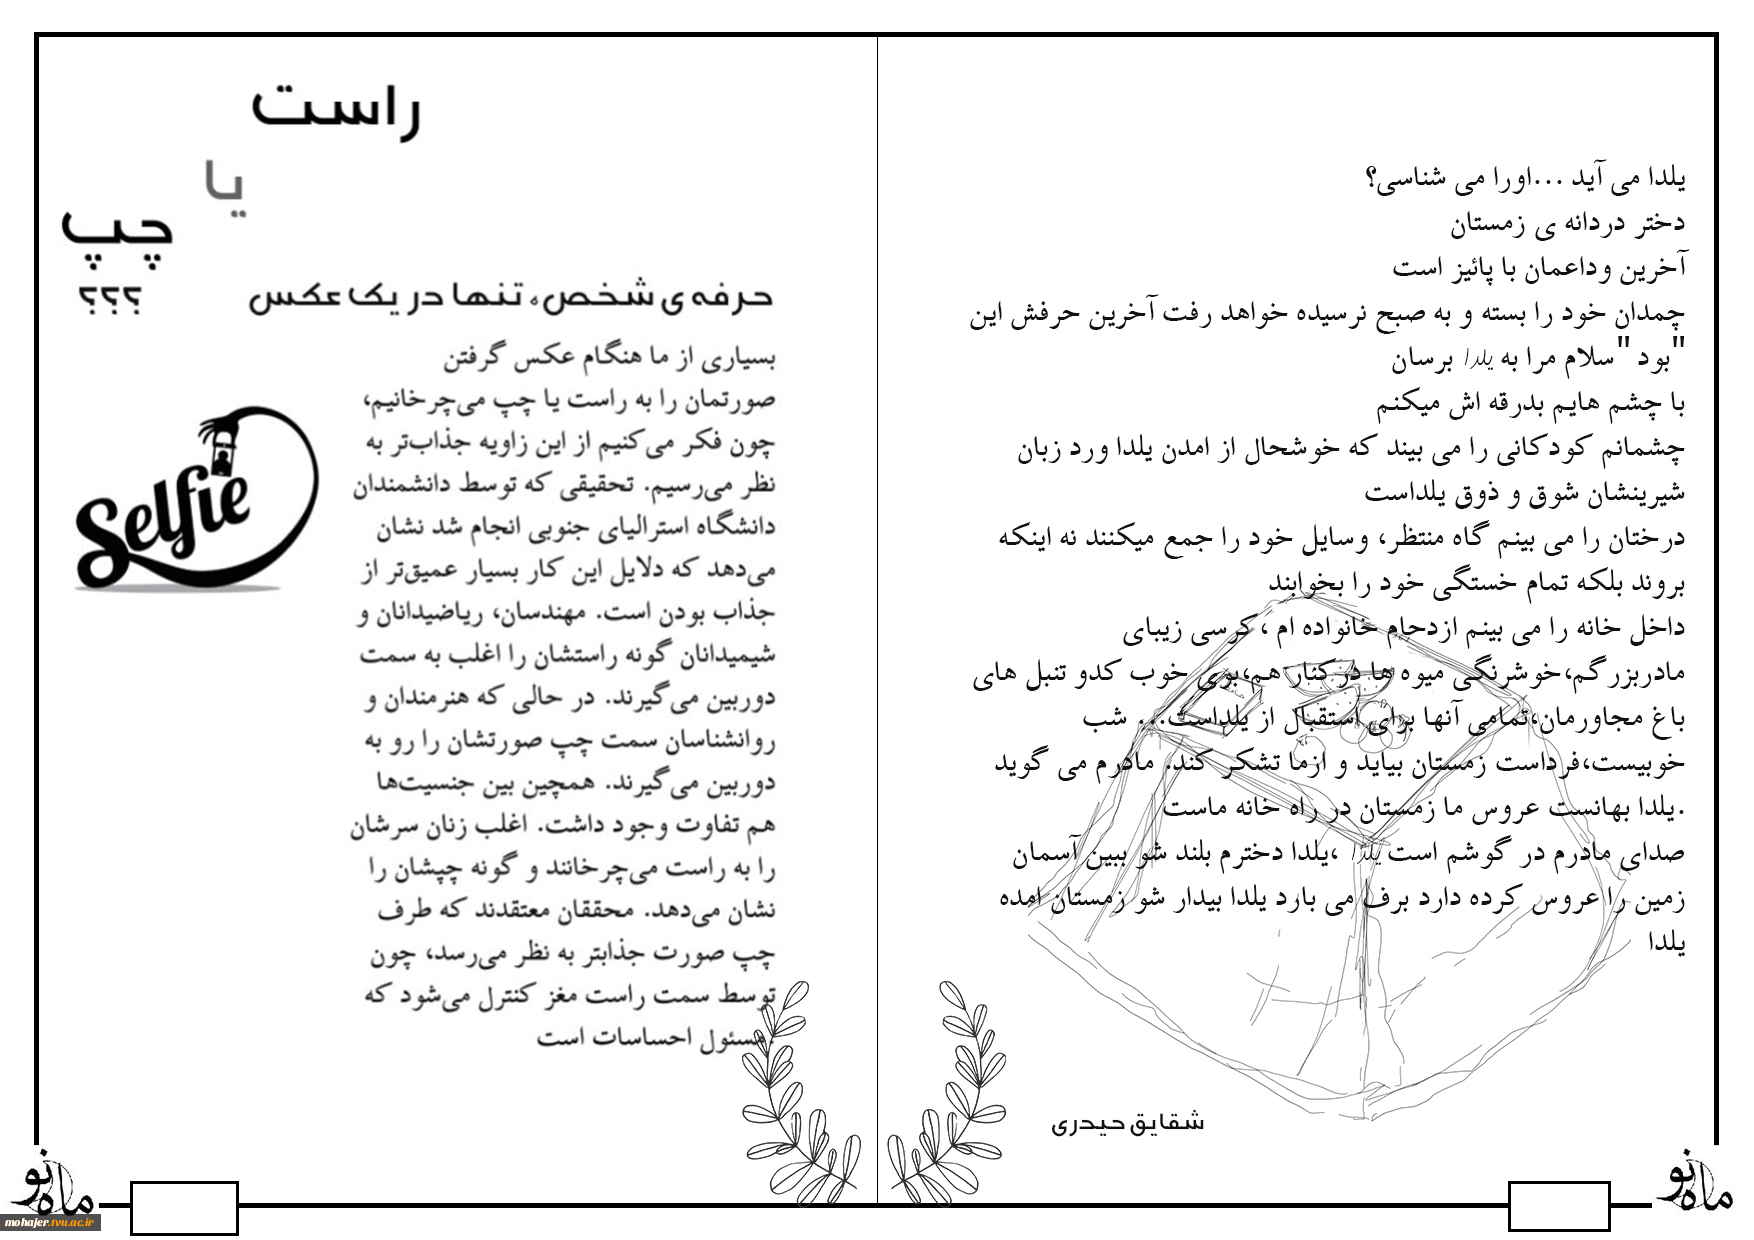 یلدا می آید ...اورا می شناسی؟
دختر دردانه ی زمستان
آخرین وداعمان با پائیز است
چمدان خود را بسته و به صبح نرسیده خواهد رفت آخرین حرفش این
"بود "سلام مرا به یلدا برسان
با چشم هایم بدرقه اش میکنم
چشمانم کودکانی را می بیند که خوشحال از امدن یلدا ورد زبان
شیرینشان شوق و ذوق یلداست
درختان را می بینم گاه منتظر، وسایل خود را جمع میکنند نه اینکه
بروند بلکه تمام خستگی خود را بخوابند
داخل خانه را می بینم ازدحام خانواده ام ،کرسی زیبای
مادربزرگم،خوشرنگی میوه ها در کنار هم،بوی خوب کدو تنبل های
باغ مجاورمان،تمامی آنها برای استقبال از یلداست... شب
خوبیست،فرداست زمستان بیاید و ازما تشکر کند. مادرم می گوید
.یلدا بهانست عروس ما زمستان در راه خانه ماست
صدای مادرم در گوشم است یلدا ،یلدا دخترم بلند شو ببین آسمان
زمین را عروس کرده دارد برف می بارد یلدا بیدار شو زمستان امده
یلدا
شقایق حیدری
ماه نو
راست
یا
چپ
؟؟؟
حرفه ی شخص، تنها در یک عکس
بسیاری از ما هنگام عکس گرفتن
صورتمان را به راست یا چپ می‌چرخانیم،
چون فکر می‌کنیم از این زاویه جذاب‌تر به
نظر می‌رسیم. تحقیقی که توسط دانشمندان
دانشگاه استرالیای جنوبی انجام شد نشان
می‌دهد که دلایل این کار بسیار عمیق‌تر از
جذاب بودن است. مهندسان، ریاضیدانان و
شیمیدانان گونه راستشان را اغلب به سمت
دوربین می‌گیرند. در حالی که هنرمندان و
روانشناسان سمت چپ صورتشان را رو به
دوربین می‌گیرند. همچین بین جنسیت‌ها
هم تفاوت وجود داشت. اغلب زنان سرشان
را به راست می‌چرخانند و گونه چپشان را
نشان می‌دهد. محققان معتقدند که طرف
چپ صورت جذابتر به نظر می‌رسد، چون
توسط سمت راست مغز کنترل می‌شود که
.مسئول احساسات است
Selfie
ماه نو
mohajer.tvu.ac.ir